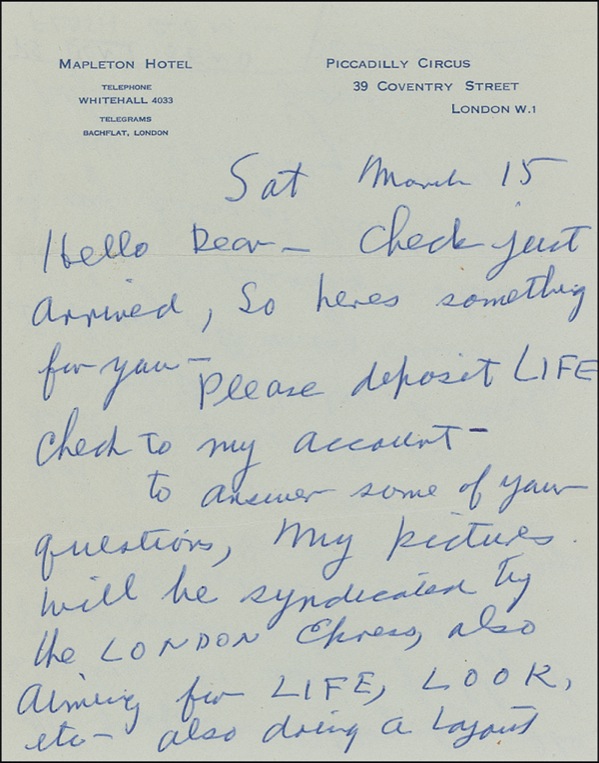 MAPLETON HOTEL
TELEPHONE
WHITEHALL 4033
TELEGRAMS
BACHFLAT, LONDON
PICCADILLY CIRCUS
39 COVENTRY STREET
LONDON W.1
Sat March 15
Hello Dear – Check just
arrived, So heres something
for you –
Please deposit LIFE
check to my account –
to answer some of your
questions, My pictures
will be syndicated by
the LONDON Express, also
Aiming for LIFE, LOOK,
etc – also doing a layout